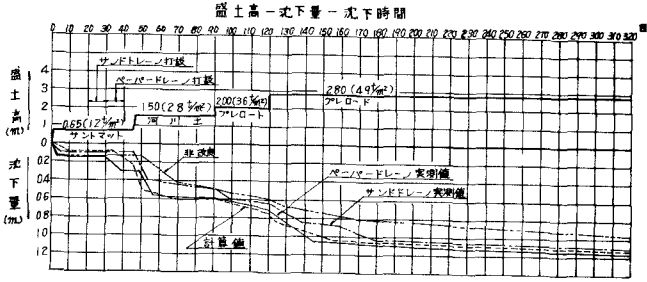 盛土高-沈下量-沈下時間
0 10 20 30 40 50 60 70 80 90 100 110 120 130 140 150 160 170 180 190 200 210 220 230 240 250 260 270 280 290 300 310 320
盛土高(m)
4
3
2
1
0
サンドドレーン打設
ペーパードレーン打設
0.65(1.2t/m²)
サンドマット
150(2.8t/m²)
河川土
200(3.6t/m²)
プレロード
2.80(4.9t/m²)
プレロード
沈下量(m)
0.2
0.4
0.6
0.8
1.0
1.2
非改良
ペーパードレーン実測値
サンドドレーン実測値
計算値